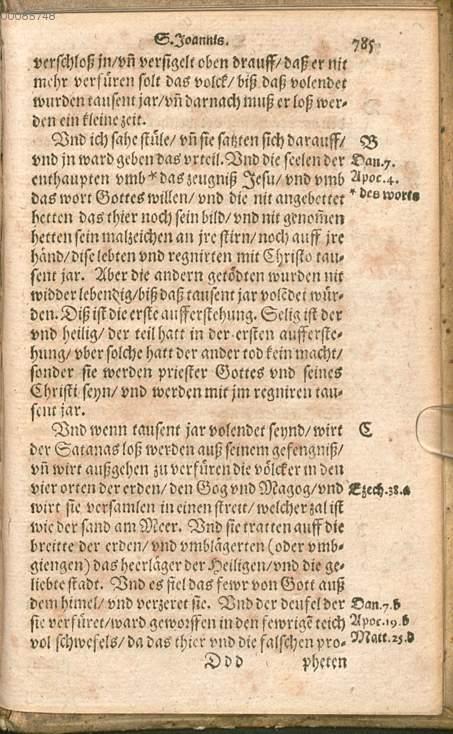 00085748
S. Joannis. 785
verschloß jn/ vn̄ versigelt oben drauff/ daß er nit
mehr verfüren solt das volck/ biß daß volendet
wurden tausent jar/ vn̄ darnach muß er loß wer-
den ein kleine zeit.
Vnd ich sahe stüle/ vn̄ sie satzten sich darauff/ B
vnd jn ward geben das vrteil. Vnd die seelen der Dan.7.
enthaupten vmb * das zeugniß Jesu/ vnd vmb Apoc.4.
das wort Gottes willen/ vnd die nit angebettet * des worts
hetten das thier noch sein bild/ vnd nit genom̄en
hetten sein malzeichen an jre stirn/ noch auff jre
händ/ dise lebten vnd regnirten mit Christo tau-
sent jar. Aber die andern getödten wurden nit
widder lebendig/ biß daß tausent jar volēdet wür-
den. Diß ist die erste aufferstehung. Selig ist der
vnd heilig/ der teil hatt in der ersten aufferste-
hung/ vber solche hatt der ander tod kein macht/
sonder sie werden priester Gottes vnd seines
Christi seyn/ vnd werden mit jm regniren tau-
sent jar.
Vnd wenn tausent jar volendet seynd/ wirt C
der Satanas loß werden auß seinem gefengniß/
vn̄ wirt außgehen zu verfüren die völcker in den
vier orten der erden/ den Gog vnd Magog/ vnd Ezech.38.a
wirt sie versamlen in einen streit/ welcher zal ist
wie der sand am Meer. Vnd sie tratten auff die
breitte der erden/ vnd vmblägerten (oder vmb-
giengen) das heerläger der Heiligen/ vnd die ge-
liebte stadt. Vnd es fiel das fewr von Gott auß
dem himel/ vnd verzeret sie. Vnd der deufel der Dan.7.b
sie verfüret/ ward geworffen in den fewrigē teich Apoc.19.b
vol schwefels/ da das thier vnd die falschen pro- Matt.25.d
Ddd pheten